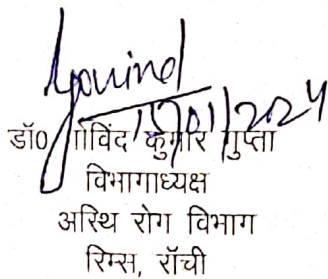 Govind
15/01/2024
डॉ0 गोविंद कुमार गुप्ता
विभागाध्यक्ष
अस्थि रोग विभाग
रिम्स, रॉंची